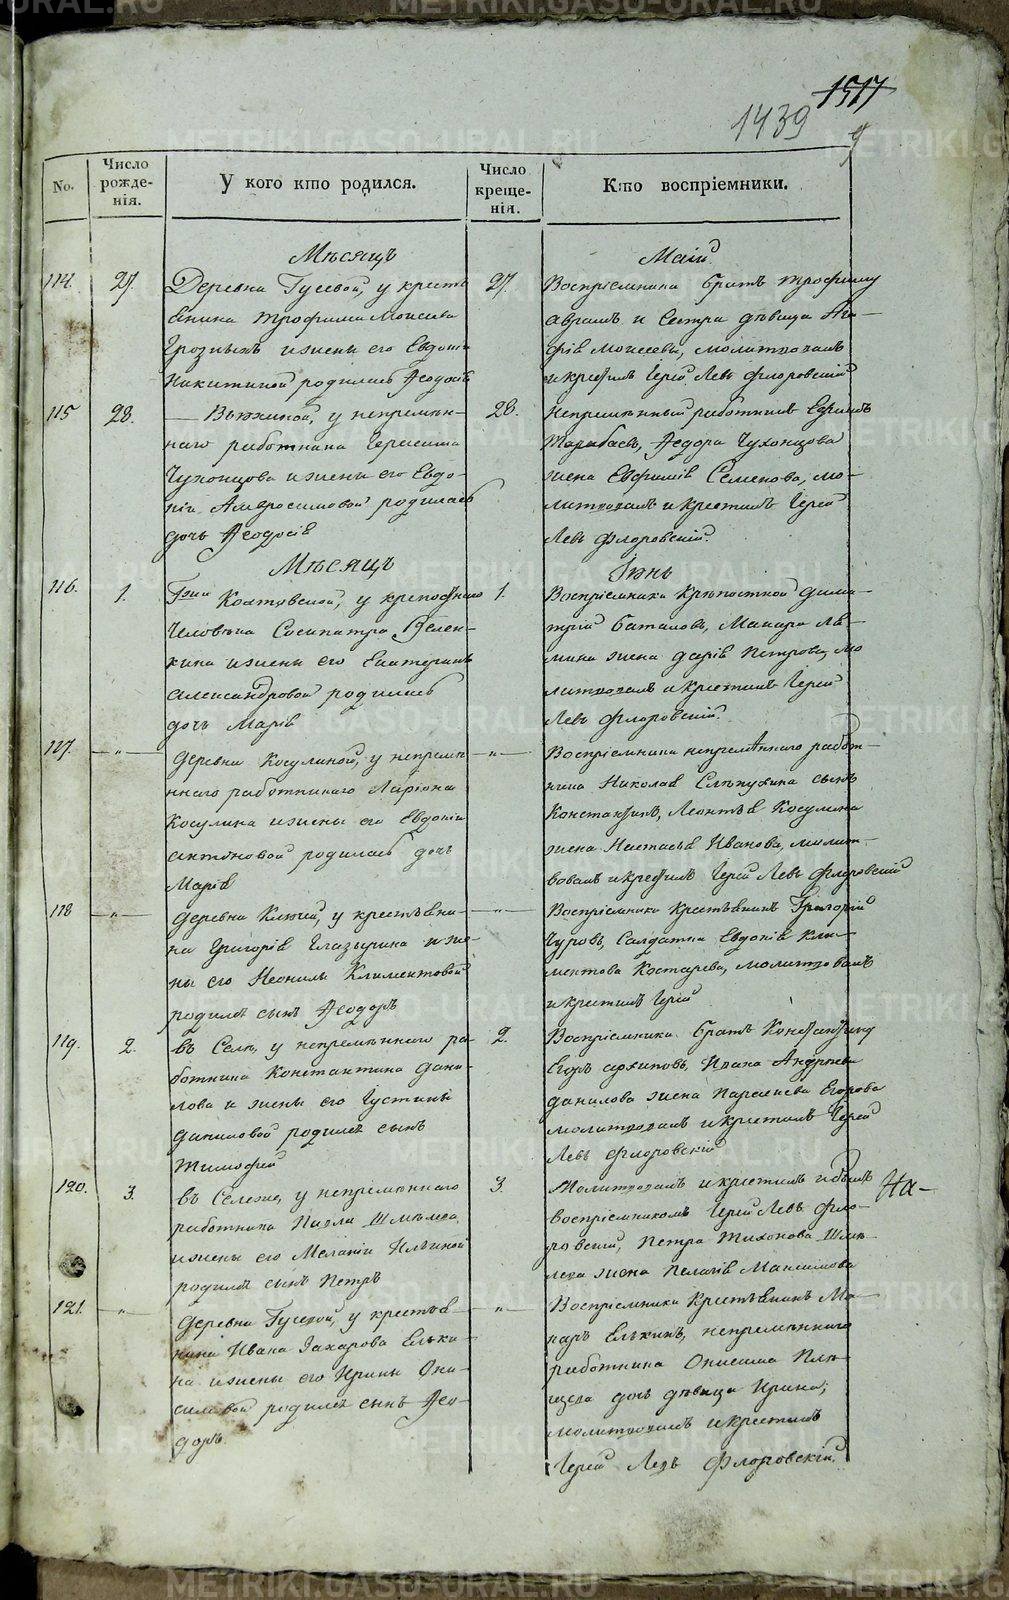 1517
1439
No.
Число рожденія.
У кого кто родился.
Число крещенія.
Кто воспріемники.
Мѣсяцъ
Маій
114. 27. Деревни Гусевой, у кресть
янина Трофима Моисѣева
Грозныхъ и жены его Евдокіи
Никитиной родилась Ѳеодосія
27. Воспріемники братъ Трофиму
Аврамъ и сестра дѣвица Ага-
фія Моисеевы, молитвовалъ
и крестилъ Іерей Левъ Флоровскій
115 28. у непремѣн-
наго работника Герасима
Чухонцова и жены его Евдо-
кіи Амвросимовой родилась
дочь Ѳеодосія
28. Непремѣнный работникъ Ефимъ
Ѳедора Чухонцова
жена Евфимія Семенова, мо-
литвовалъ и крестилъ Іерей
Левъ Флоровскій.
Мѣсяцъ
Іюнь
116. 1. Гжи у крепостнаго
человѣка Сосипатра
кина и жены его Екатерины
Александровой родилась
дочь Марія
1. Воспріемники крѣпостной Дими-
трій Баталовъ, Макара
жена Дарія Петрова, мо
литвовалъ и крестилъ Іерей
Левъ Флоровскій.
117. — „ — Деревни Косулиной, у непремѣ
ннаго работника Ларіона
Косулина и жены его Евдокіи
Антоновой родилась дочь
Марія
— „ — Воспріемники непремѣннаго работ-
ника Николая Слѣпухина сынъ
Константинъ, Леонтья Косулина
жена Настасья Иванова, молит-
вовалъ и крестилъ Іерей Левъ Флоровскій
118 — „ — Деревни Ключей, у крестьяни-
на Григорія Глазырина и же-
ны его Неонилы Климентовой
родился сынъ Ѳеодоръ
— „ — Воспріемники крестьянинъ Григорій
Чуровъ, солдатка Евдокія Кли-
ментова Костарева, молитвовалъ
и крестилъ Іерей
119. 2. въ Селѣ, у непремѣннаго ра-
ботника Константина Дани-
лова и жены его Густины
Даниловой родился сынъ
Тимофей
2. Воспріемники братъ Константину
Егоръ Архиповъ, Ивана Андреева
Данилова жена Парасѣва Егорова
молитвовалъ и крестилъ Іерей
Левъ Флоровскій
120. 3. въ Селѣ же, у непремѣннаго
работника Павла Шмѣлева
и жены его Меланіи Ильиной
родился сынъ Петръ
3. Молитвовалъ и крестилъ и былъ
воспріемникомъ Іерей Левъ Фло-
ровскій, Петра Тихонова Шмѣ-
лева жена Пелагія Максимова
На-
121. — „ — Деревни Гусевой, у крестья
нина Ивана Захарова Ельки-
на и жены его Ирины Они-
симовой родился сынъ Ѳео-
доръ.
— „ — Воспріемники крестьянинъ Ма-
каръ Елькинъ, непремѣннаго
работника Онисима
дочь дѣвица Ирина;
молитвовалъ и крестилъ
Іерей Левъ Флоровскій.
METRIKI.GASO-URAL.RU